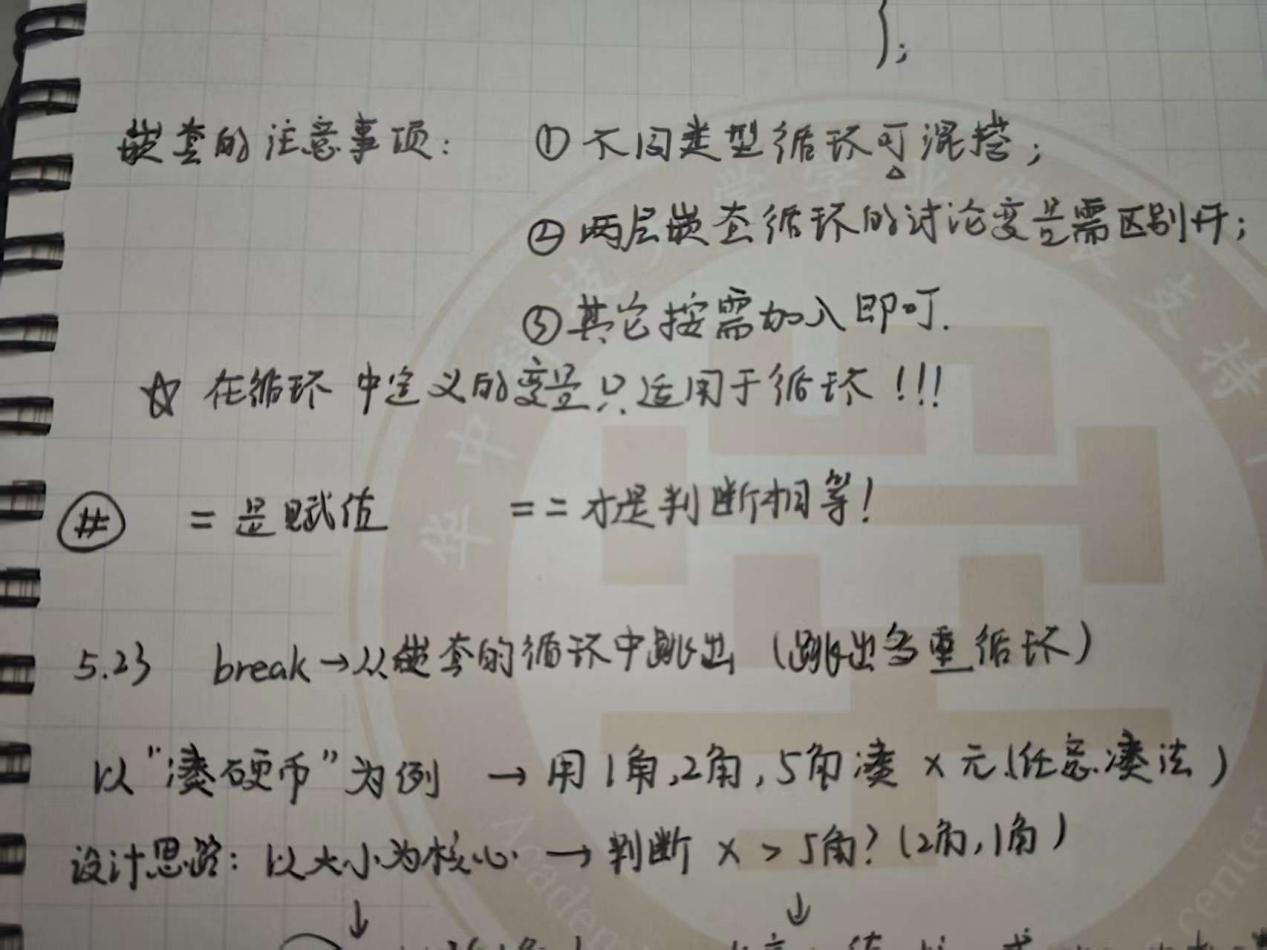 };
嵌套的注意事项: ①不同类型循环可混搭;
②两层嵌套循环的讨论变量需区别开;
③其它按需加入即可.
☆ 在循环中定义的变量只适用于循环!!!
# = 是赋值 == 才是判断相等!
5.23 break→从嵌套的循环中跳出 (跳出多重循环)
以"凑硬币"为例 → 用1角,2角,5角凑x元(任意凑法)
设计思路: 以大小为核心 → 判断 x > 5角? (2角,1角)
↓ ↓